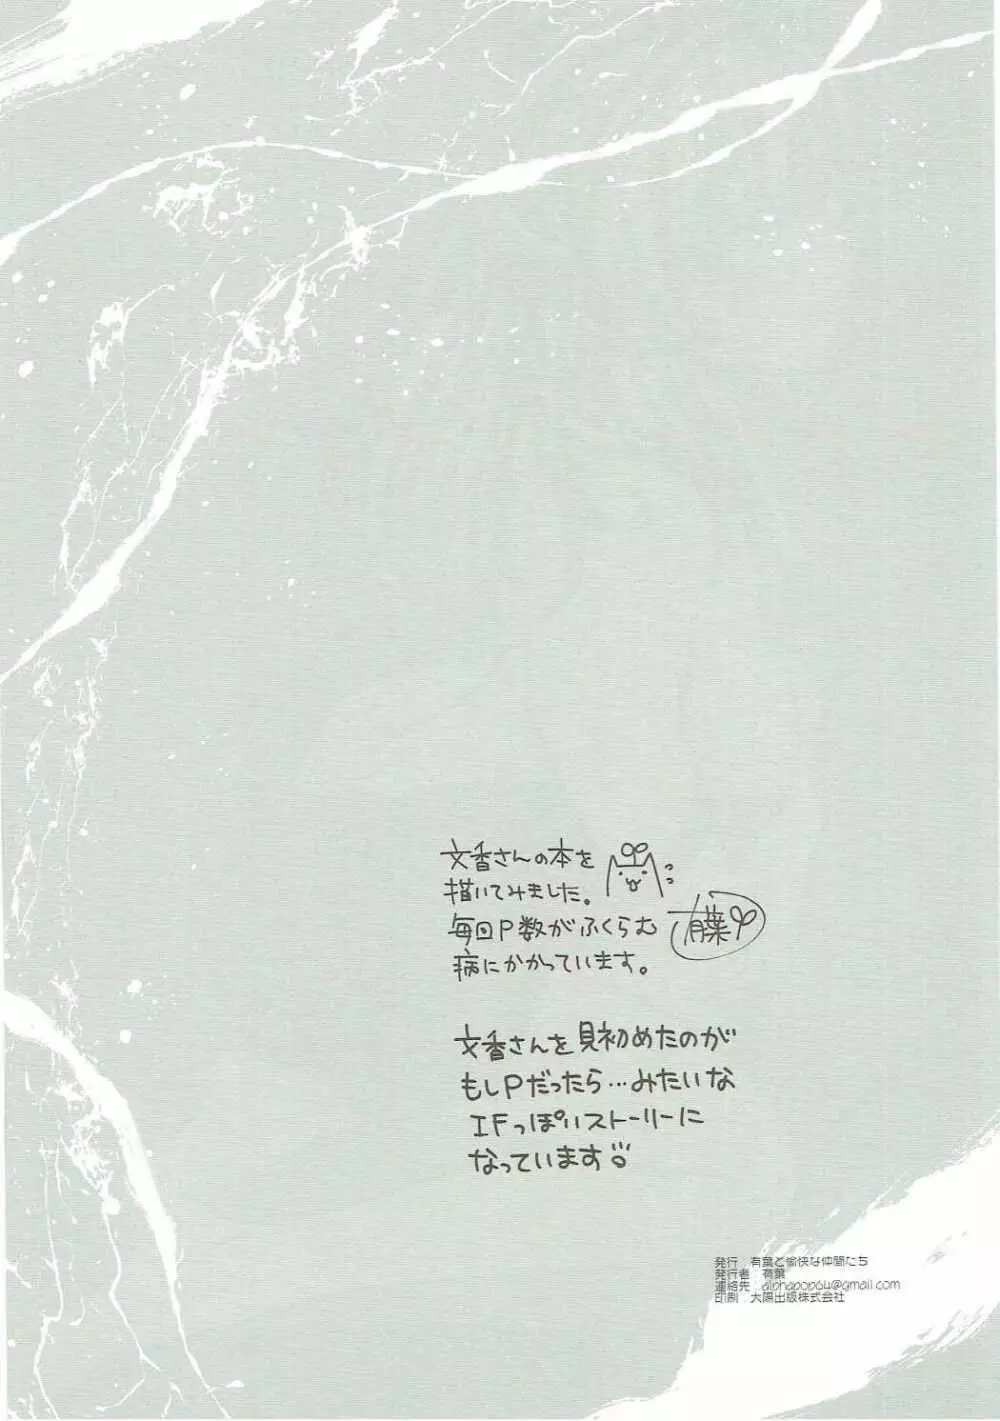 文香さんの本を
描いてみました。
毎回P数がふくらむ
病にかかっています。
有葉
文香さんを見初めたのが
もしPだったら…みたいな
IFっぽいストーリーに
なっています
発行 有葉と愉快な仲間たち
発行者 有葉
連絡先 alphapop64@gmail.com
印刷 大陽出版株式会社